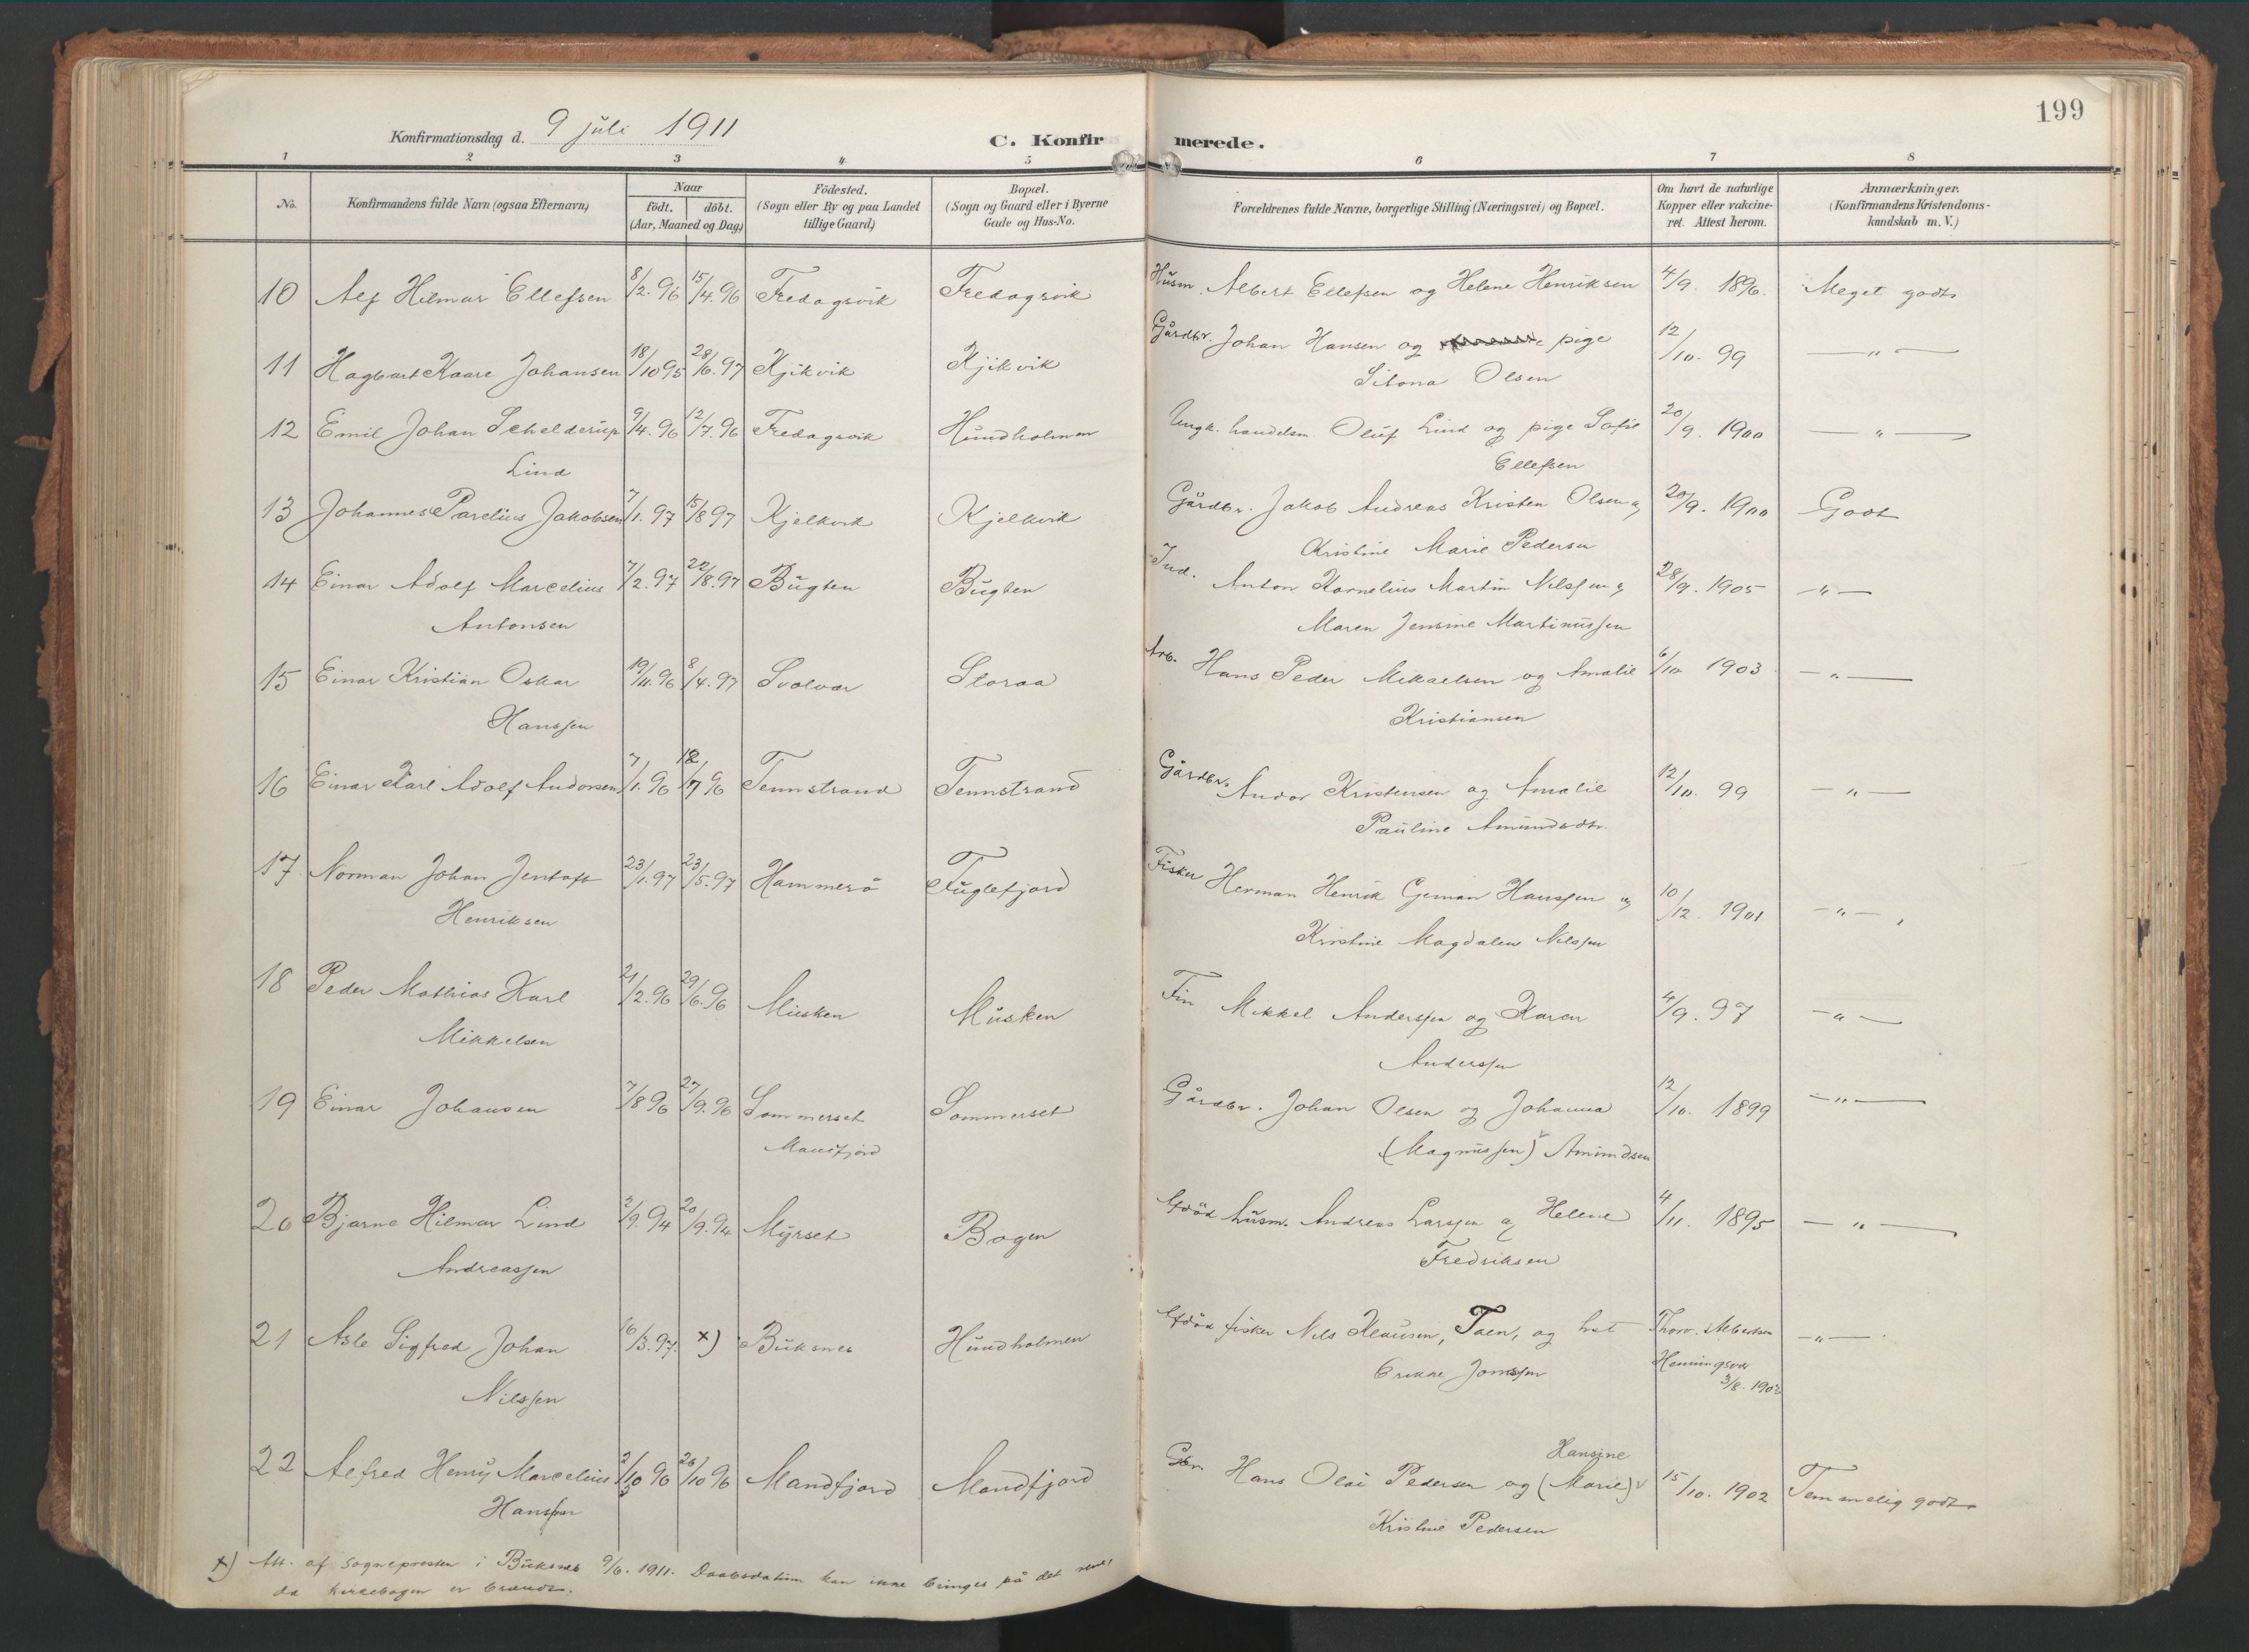 199
Konfirmationsdag d. 9 juli 1911
C. Konfirmerede.
1 2 3 4 5 6 7 8
No.
Konfirmandens fulde Navn (ogsaa Efternavn)
Naar
födt. döbt.
(Aar, Maaned og Dag)
Födested.
(Sogn eller By og paa Landet
tillige Gaard)
Bopæl.
(Sogn og Gaard eller i Byerne
Gade og Hus-No.
Forældrenes fulde Navne, borgerlige Stilling (Næringsvei) og Bopæl.
Om havt de naturlige
Kopper eller vakcine-
ret. Attest herom.
Anmærkninger.
(Konfirmandens Kristendoms-
kundskab m. V.)
10 Alf Hilmar Ellefsen 8/2. 96 15/4. 96 Fredagsvik Fredagsvik Husm. Albert Ellefsen og Helene Henriksen 4/9. 1896. Meget godt
11 Hagbart Kaare Johansen 18/10 95 28/6. 97 Kjikvik Kjikvik Gårdbr. Johan Hansen og pige 12/10. 99 — " —
Sitona Olsen
12 Emil Johan Schelderup 9/4. 96 12/7. 96 Fredagsvik Hundholmen Ungk. handelsm. Oluf Lind og pige Sofie 20/9. 1900 — " —
Lind Ellefsen
13 Johannes Parelius Jakobsen 7/1. 97 15/8 97 Kjelkvik Kjelkvik Gårdbr. Jakob Andreas Kristen Olsen og 20/9. 1900 Godt
Kristine Marie Pedersen
14 Einar Adolf Marcelius 7/2. 97 22/8. 97 Bugten Bugten Ind. Anton Kornelius Martin Nilssen og 28/9. 1905 — " —
Antonsen Maren Jensine Martinussen
15 Einar Kristian Oskar 19/11. 96 8/4. 97 Svolvær Storaa Arb. Hans Peder Mikaelsen og Amalie 6/10 1903 — " —
Hanssen Kristiansen
16 Einar Karl Adolf Andorsen 7/1. 96 12/7 96 Tennstrand Tennstrand Gårdbr. Andor Kristensen og Amalie 12/10. 99 — " —
Pauline Amundsdtr.
17 Norman Johan Jentoft 23/1. 97 23/5. 97 Hammerö Fuglefjord Fisker Herman Henrik German Hanssen og 10/12. 1901 — " —
Henriksen Kristine Magdalene Nilssen
18 Peder Mathias Karl 21/2. 96 29/6. 96 Musken Musken Fin Mikkel Anderssen og Karen 4/9. 97 — " —
Mikkelsen Anderssen
19 Einar Johansen 7/8 96 27/9. 96 Sommerset Sommerset Gårdbr. Johan Olsen og Johanna 12/10. 1899 — " —
Mandfjord (Magnussen) Amundsen
20 Bjarne Hilmar Lind 2/9. 94 20/9. 94 Myrset Bogen Afdöd husm. Andreas Larssen og Helene 4/11. 1895 — " —
Andreassen Fredriksen
21 Asle Sigfred Johan 16/3. 97. x) Buksnes Hundholmen Afdöd fisker Nils Klausen, Taen, og hst Thorv. Albertsen — " —
Nilssen Erikke Jonssen Henningsvær
3/8. 1902
22 Alfred Henry Marcelius 2/10 96 26/10 96 Mandfjord Mandfjord Gbr. Hans Olai Pedersen og (Marie) Hansine 15/10. 1902 Temmelig godt
Hanssen Kristine Pedersen
x) Att. af sognepresten i Buksnes 9/6. 1911. Daabsdatum kan ikke bringes på det rene!
da kirkebogen er brændt.